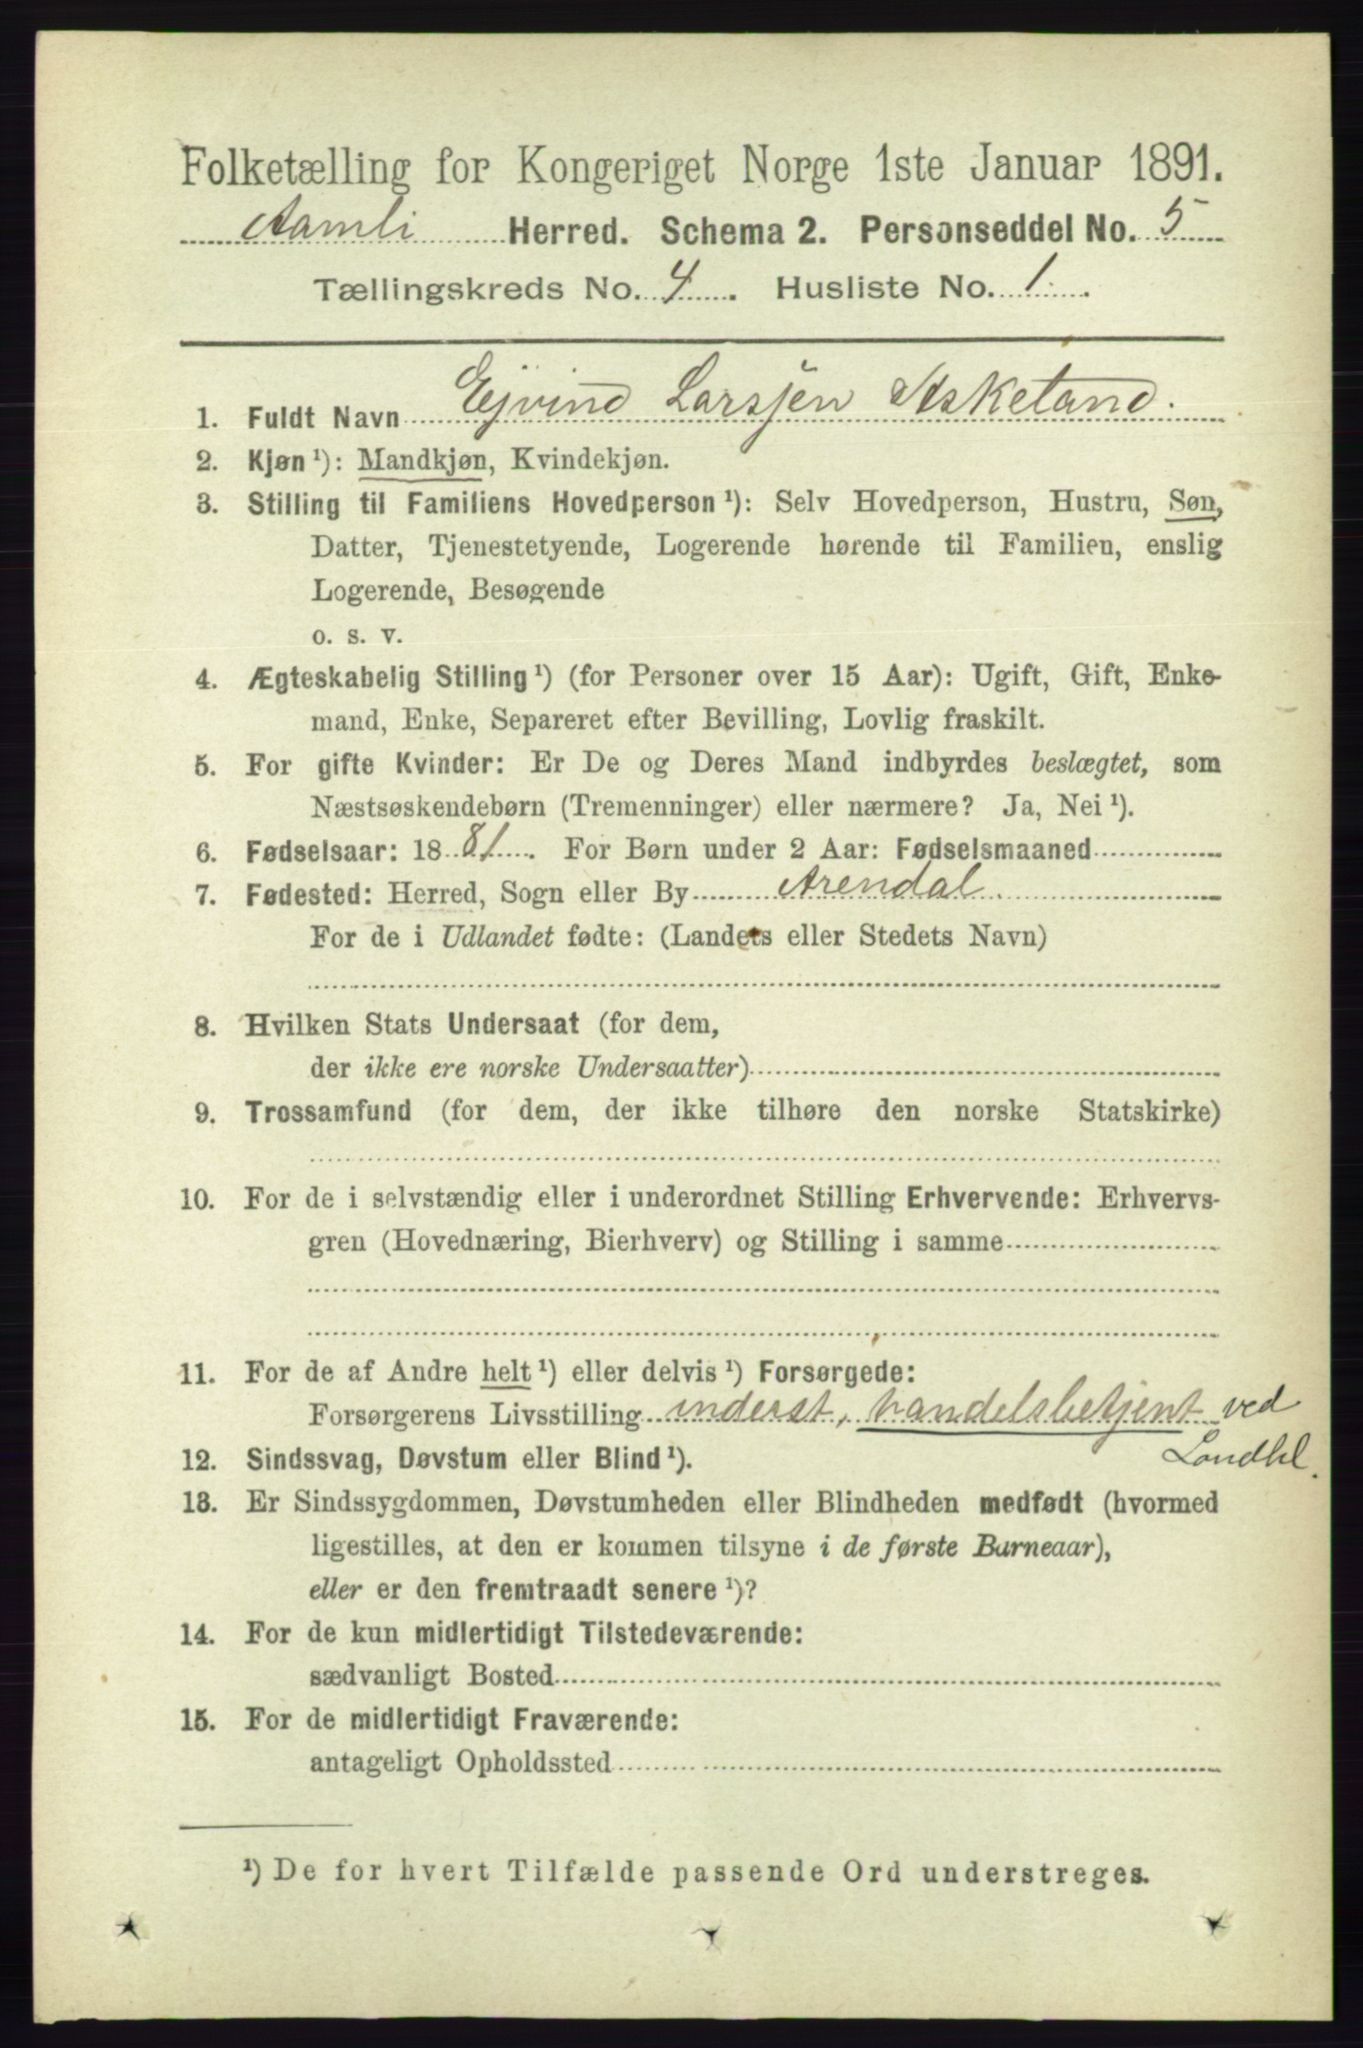 Folketælling for Kongeriget Norge 1ste Januar 1891.
Aamli Herred. Schema 2. Personseddel No. 5
Tællingskreds No. 4. Husliste No. 1.
1. Fuldt Navn Ejvind Larsjen Askeland.
2. Kjøn ¹): Mandkjøn, Kvindekjøn.
3. Stilling til Familiens Hovedperson ¹): Selv Hovedperson, Hustru, Søn,
Datter, Tjenestetyende, Logerende hørende til Familien, enslig
Logerende, Besøgende
o. s. v.
4. Ægteskabelig Stilling ¹) (for Personer over 15 Aar): Ugift, Gift, Enke-
mand, Enke, Separeret efter Bevilling, Lovlig fraskilt.
5. For gifte Kvinder: Er De og Deres Mand indbyrdes beslægtet, som
Næstsøskendebørn (Tremenninger) eller nærmere? Ja, Nei ¹).
6. Fødselsaar: 1881. For Børn under 2 Aar: Fødselsmaaned
7. Fødested: Herred, Sogn eller By Arendal.
For de i Udlandet fødte: (Landets eller Stedets Navn)
8. Hvilken Stats Undersaat (for dem,
der ikke ere norske Undersaatter)
9. Trossamfund (for dem, der ikke tilhøre den norske Statskirke)
10. For de i selvstændig eller i underordnet Stilling Erhvervende: Erhvervs-
gren (Hovednæring, Bierhverv) og Stilling i samme
11. For de af Andre helt ¹) eller delvis ¹) Forsørgede:
Forsørgerens Livsstilling inderst, handelsbetjent ved
Landhl.
12. Sindssvag, Døvstum eller Blind ¹).
13. Er Sindssygdommen, Døvstumheden eller Blindheden medfødt (hvormed
ligestilles, at den er kommen tilsyne i de første Barneaar),
eller er den fremtraadt senere ¹)?
14. For de kun midlertidigt Tilstedeværende:
sædvanligt Bosted
15. For de midlertidigt Fraværende:
antageligt Opholdssted
¹) De for hvert Tilfælde passende Ord understreges.